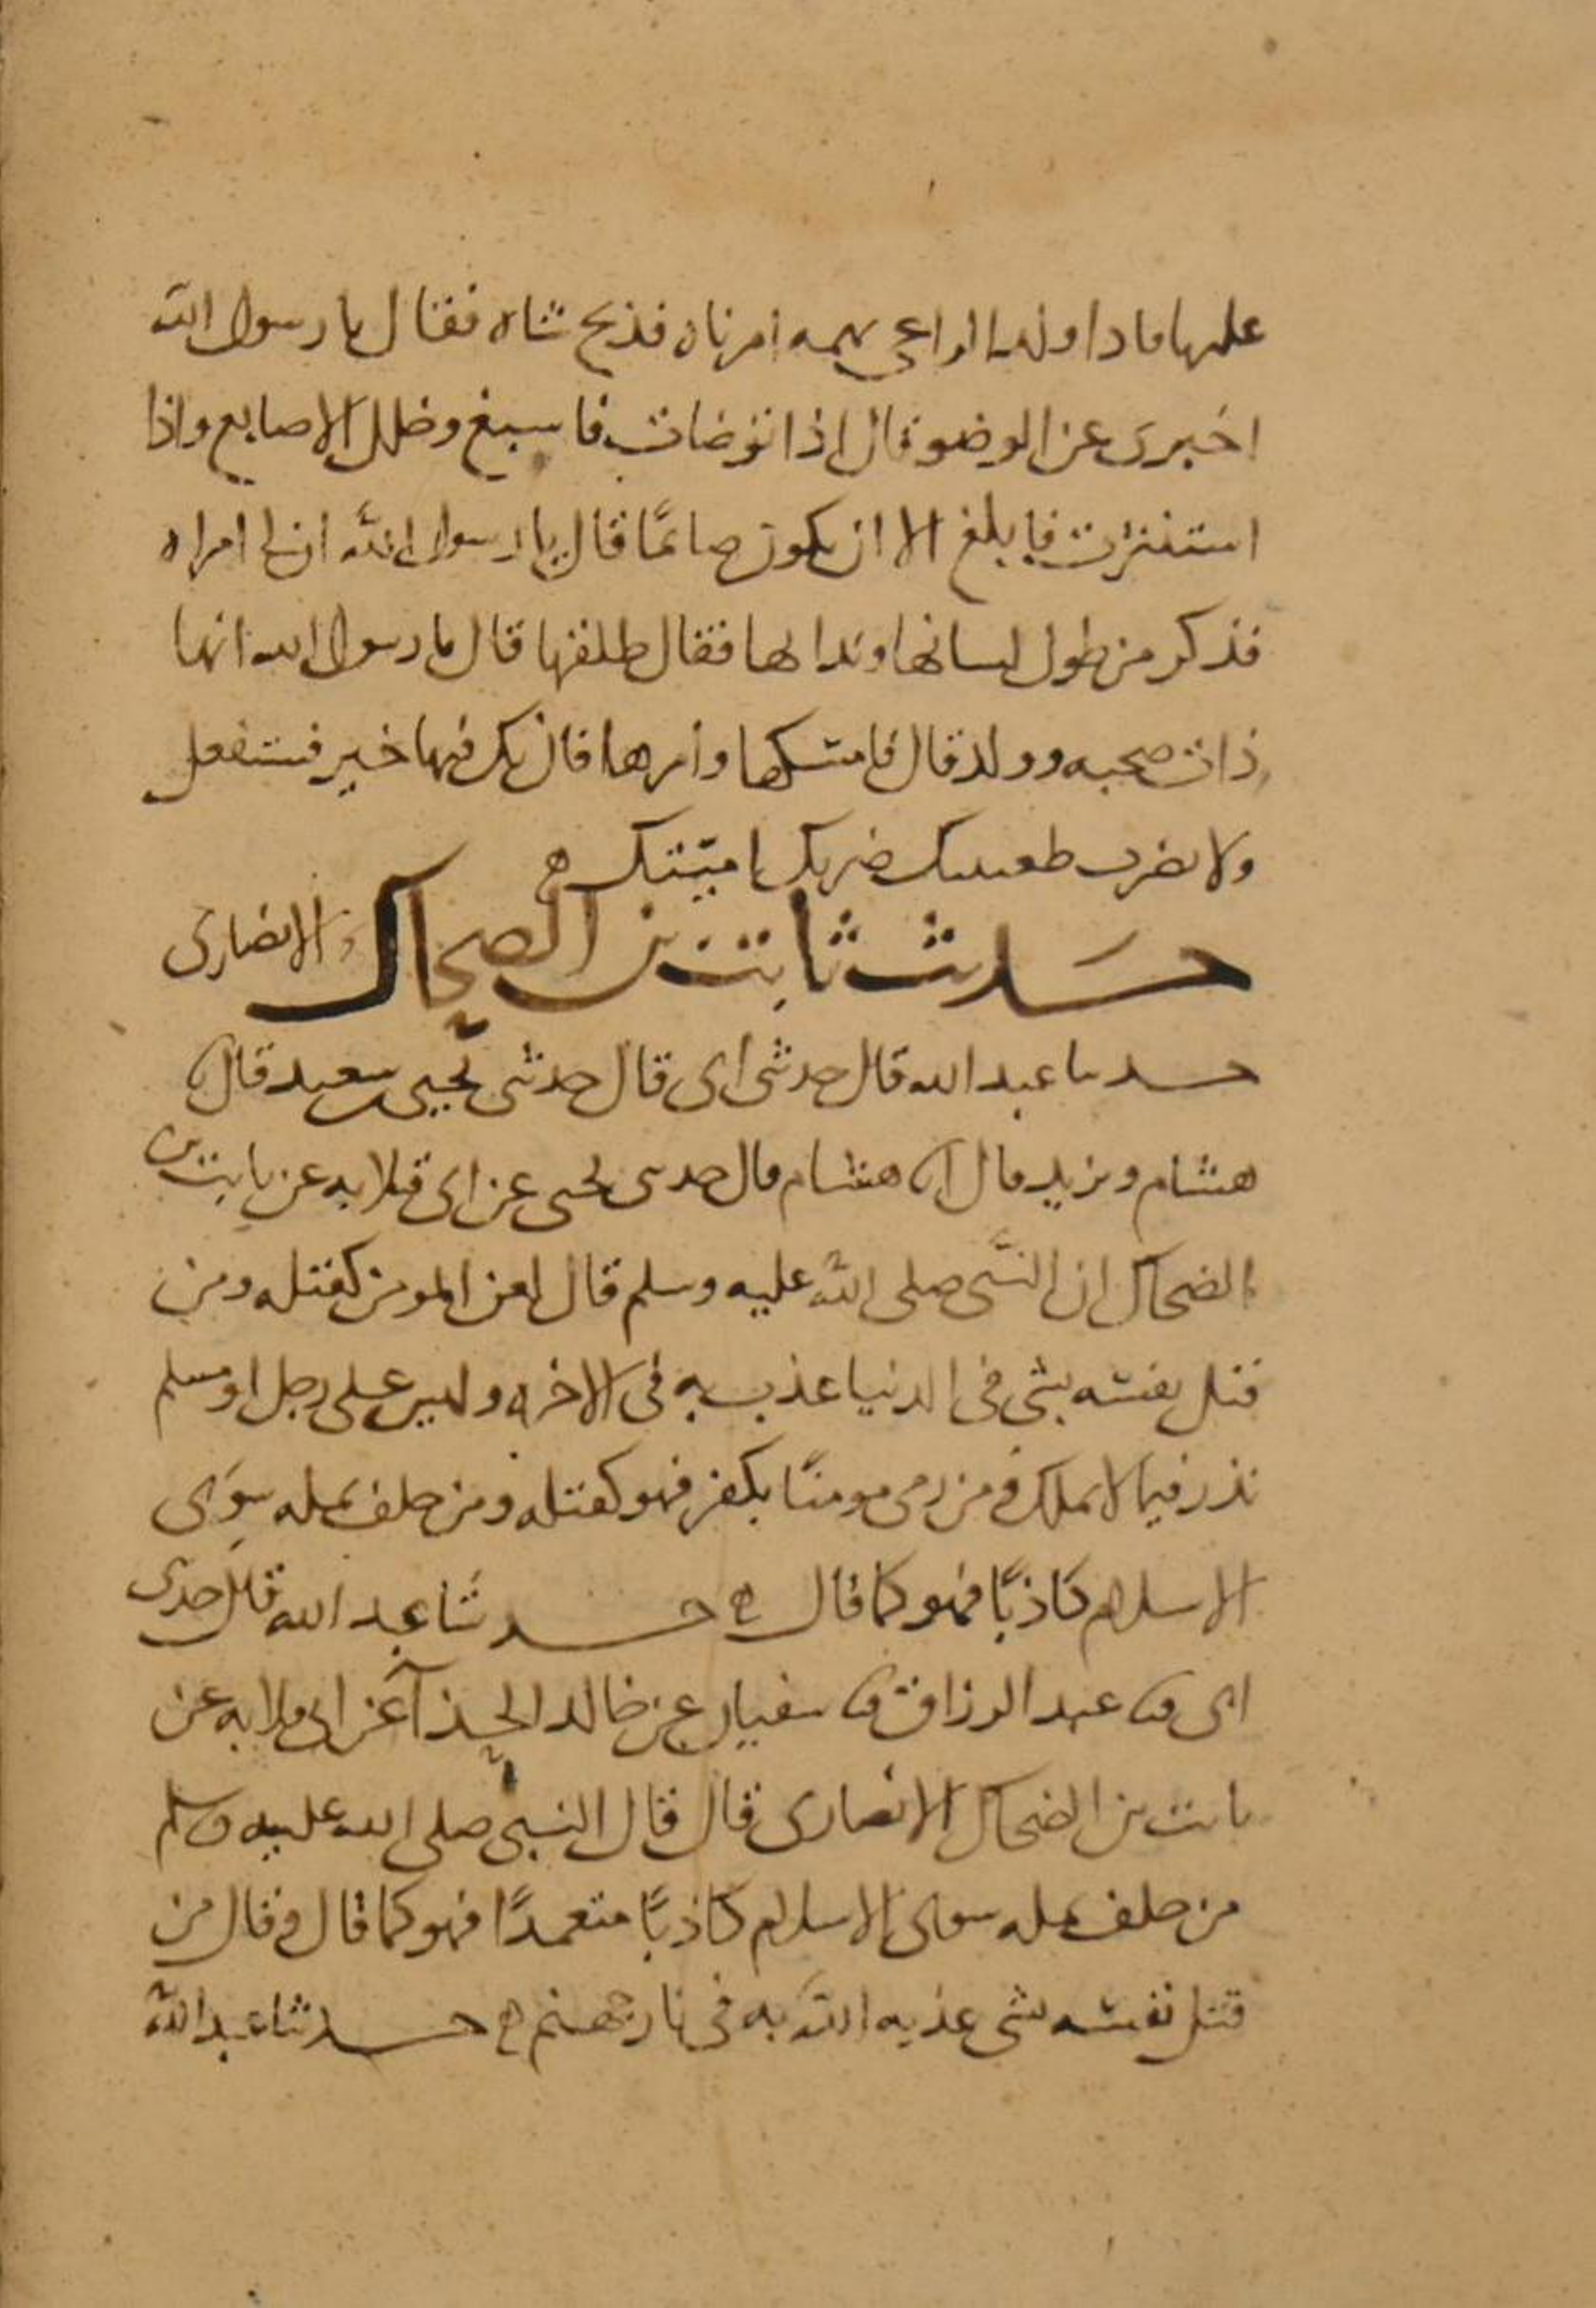 عليها فاذا ولد الراعي بهمه امرناه فذبح شاه فقال يا رسول الله
اخبرني عن الوضو قال اذا توضات فاسبغ وخلل الاصابع واذا
استنثرت فابلغ الا ان يكون صائمًا قال يا رسول الله ان لي امراه
فذكر من طول لسانها وبذائها فقال طلقها قال يا رسول الله انها
ذات صحبه وولد قال فامسكها وأمرها فان يك فيها خير فستفعل
ولا تضرب ظعينتك ضربك اميتك ه
حديث ثابت بن الضحاك الانصاري
حدثنا عبد الله قال حدثني ابي قال حدثني يحيى بن سعيد قال
هشام ويزيد قال انا هشام قال حدثني يحيى عن ابي قلابه عن ثابت بن
الضحاك ان النبي صلى الله عليه وسلم قال لعن المومن كقتله ومن
قتل نفسه بشي في الدنيا عذب به في الاخره وليس على رجل او مسلم
نذر فيما لا يملك ومن رمى مومنًا بكفر فهو كقتله ومن حلف بمله سوى
الاسلام كاذبًا فهو كما قال ه حدثنا عبد الله قال حدثني
ابي ثنا عبد الرزاق ثنا سفيان عن خالد الحذآ عن ابي قلابه عن
ثابت بن الضحاك الانصاري قال قال النبي صلى الله عليه وسلم
من حلف بمله سوى الاسلام كاذبًا متعمدًا فهو كما قال وقال من
قتل نفسه بشي عذبه الله به في نار جهنم ه حدثنا عبد الله